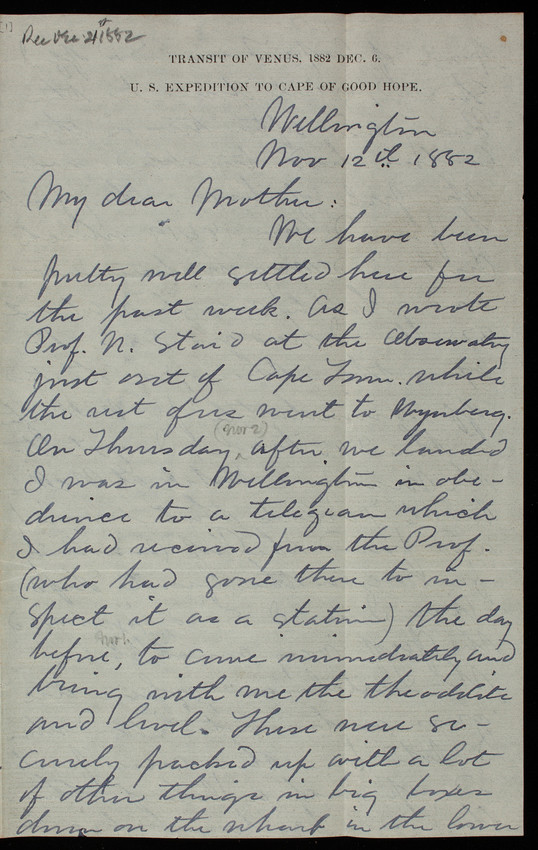 [1]
Rec Dec 21st 1882
TRANSIT OF VENUS, 1882 DEC. 6.
U. S. EXPEDITION TO CAPE OF GOOD HOPE.
Wellington
Nov 12th 1882
My dear Mother:
We have been
pretty well settled here for
the past week. As I wrote
Prof. N. Staid at the Observatory
just out of Cape Town. while
the rest of us went to Wynberg.
On Thursday, after we landed
(Nov 2)
I was in Wellington in obe-
dience to a telegram which
I had received from the Prof.
(who had gone there to in-
spect it as a station) the day
before, to come immediately and
Nov 1.
bring with me the theodolite
and level. These were se-
curely packed up with a lot
of other things in big boxes
down on the wharf in the lower